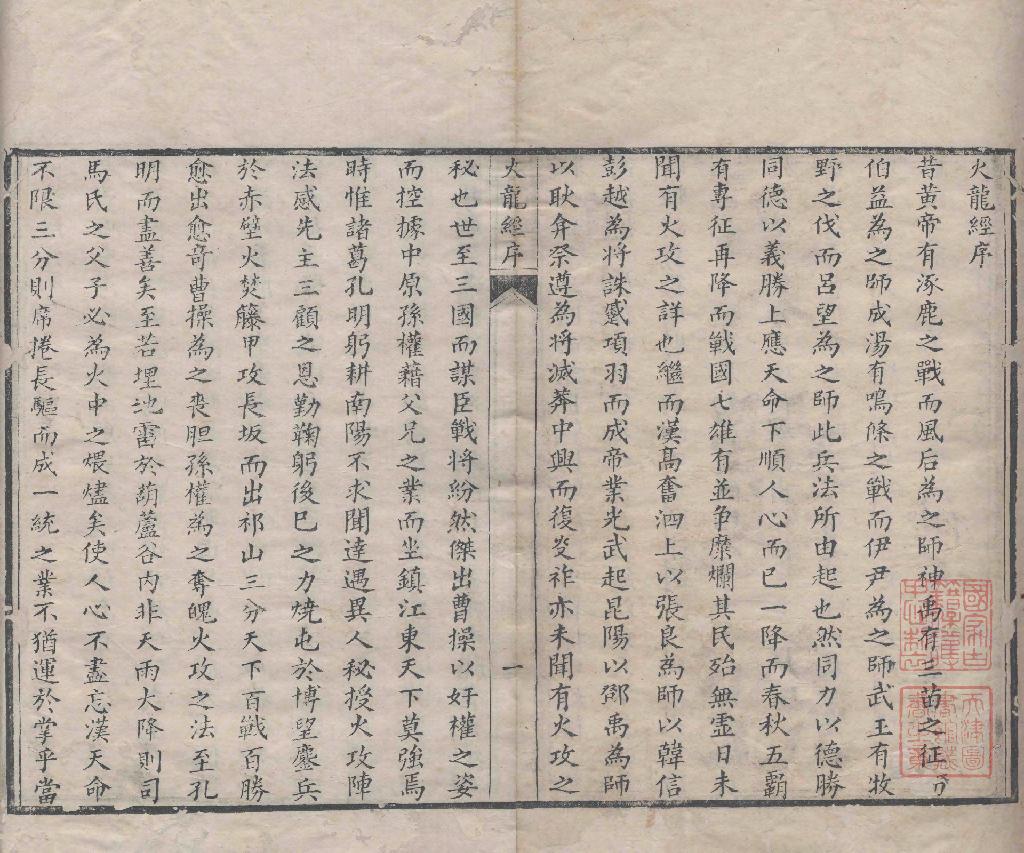 火龍經序
昔黃帝有涿鹿之戰而風后為之師神禹有三苗之征而
伯益為之師成湯有鳴條之戰而伊尹為之師武王有牧
野之伐而呂望為之師此兵法所由起也然同力以德勝
同德以義勝上應天命下順人心而已一降而春秋五霸
有專征再降而戰國七雄有並争糜爛其民殆無虛日未
聞有火攻之詳也繼而漢高奮泗上以張良為師以韓信
彭越為將誅項羽而成帝業光武起昆陽以鄧禹為師
以耿弇祭遵為將滅莽中興而復炎祚亦未聞有火攻之
火龍經序
一
秘也世至三國而謀臣戰將紛然傑出曹操以奸權之姿
而控據中原孫權藉父兄之業而坐鎮江東天下莫強焉
時惟諸葛孔明躬耕南陽不求聞達遇異人秘授火攻陣
法感先主三顧之恩勤鞠躬後已之力燒屯於博望鏖兵
於赤壁火焚籐甲攻長坂而出祁山三分天下百戰百勝
愈出愈奇曹操為之喪胆孫權為之奪魄火攻之法至孔
明而盡善矣至若埋地雷於葫蘆谷内非天雨大降則司
馬氏之父子必為火中之煨燼矣使人心不盡忘漢天命
不限三分則席捲長驅而成一統之業不猶運於掌乎當
國家古籍善本
天津圖書館藏